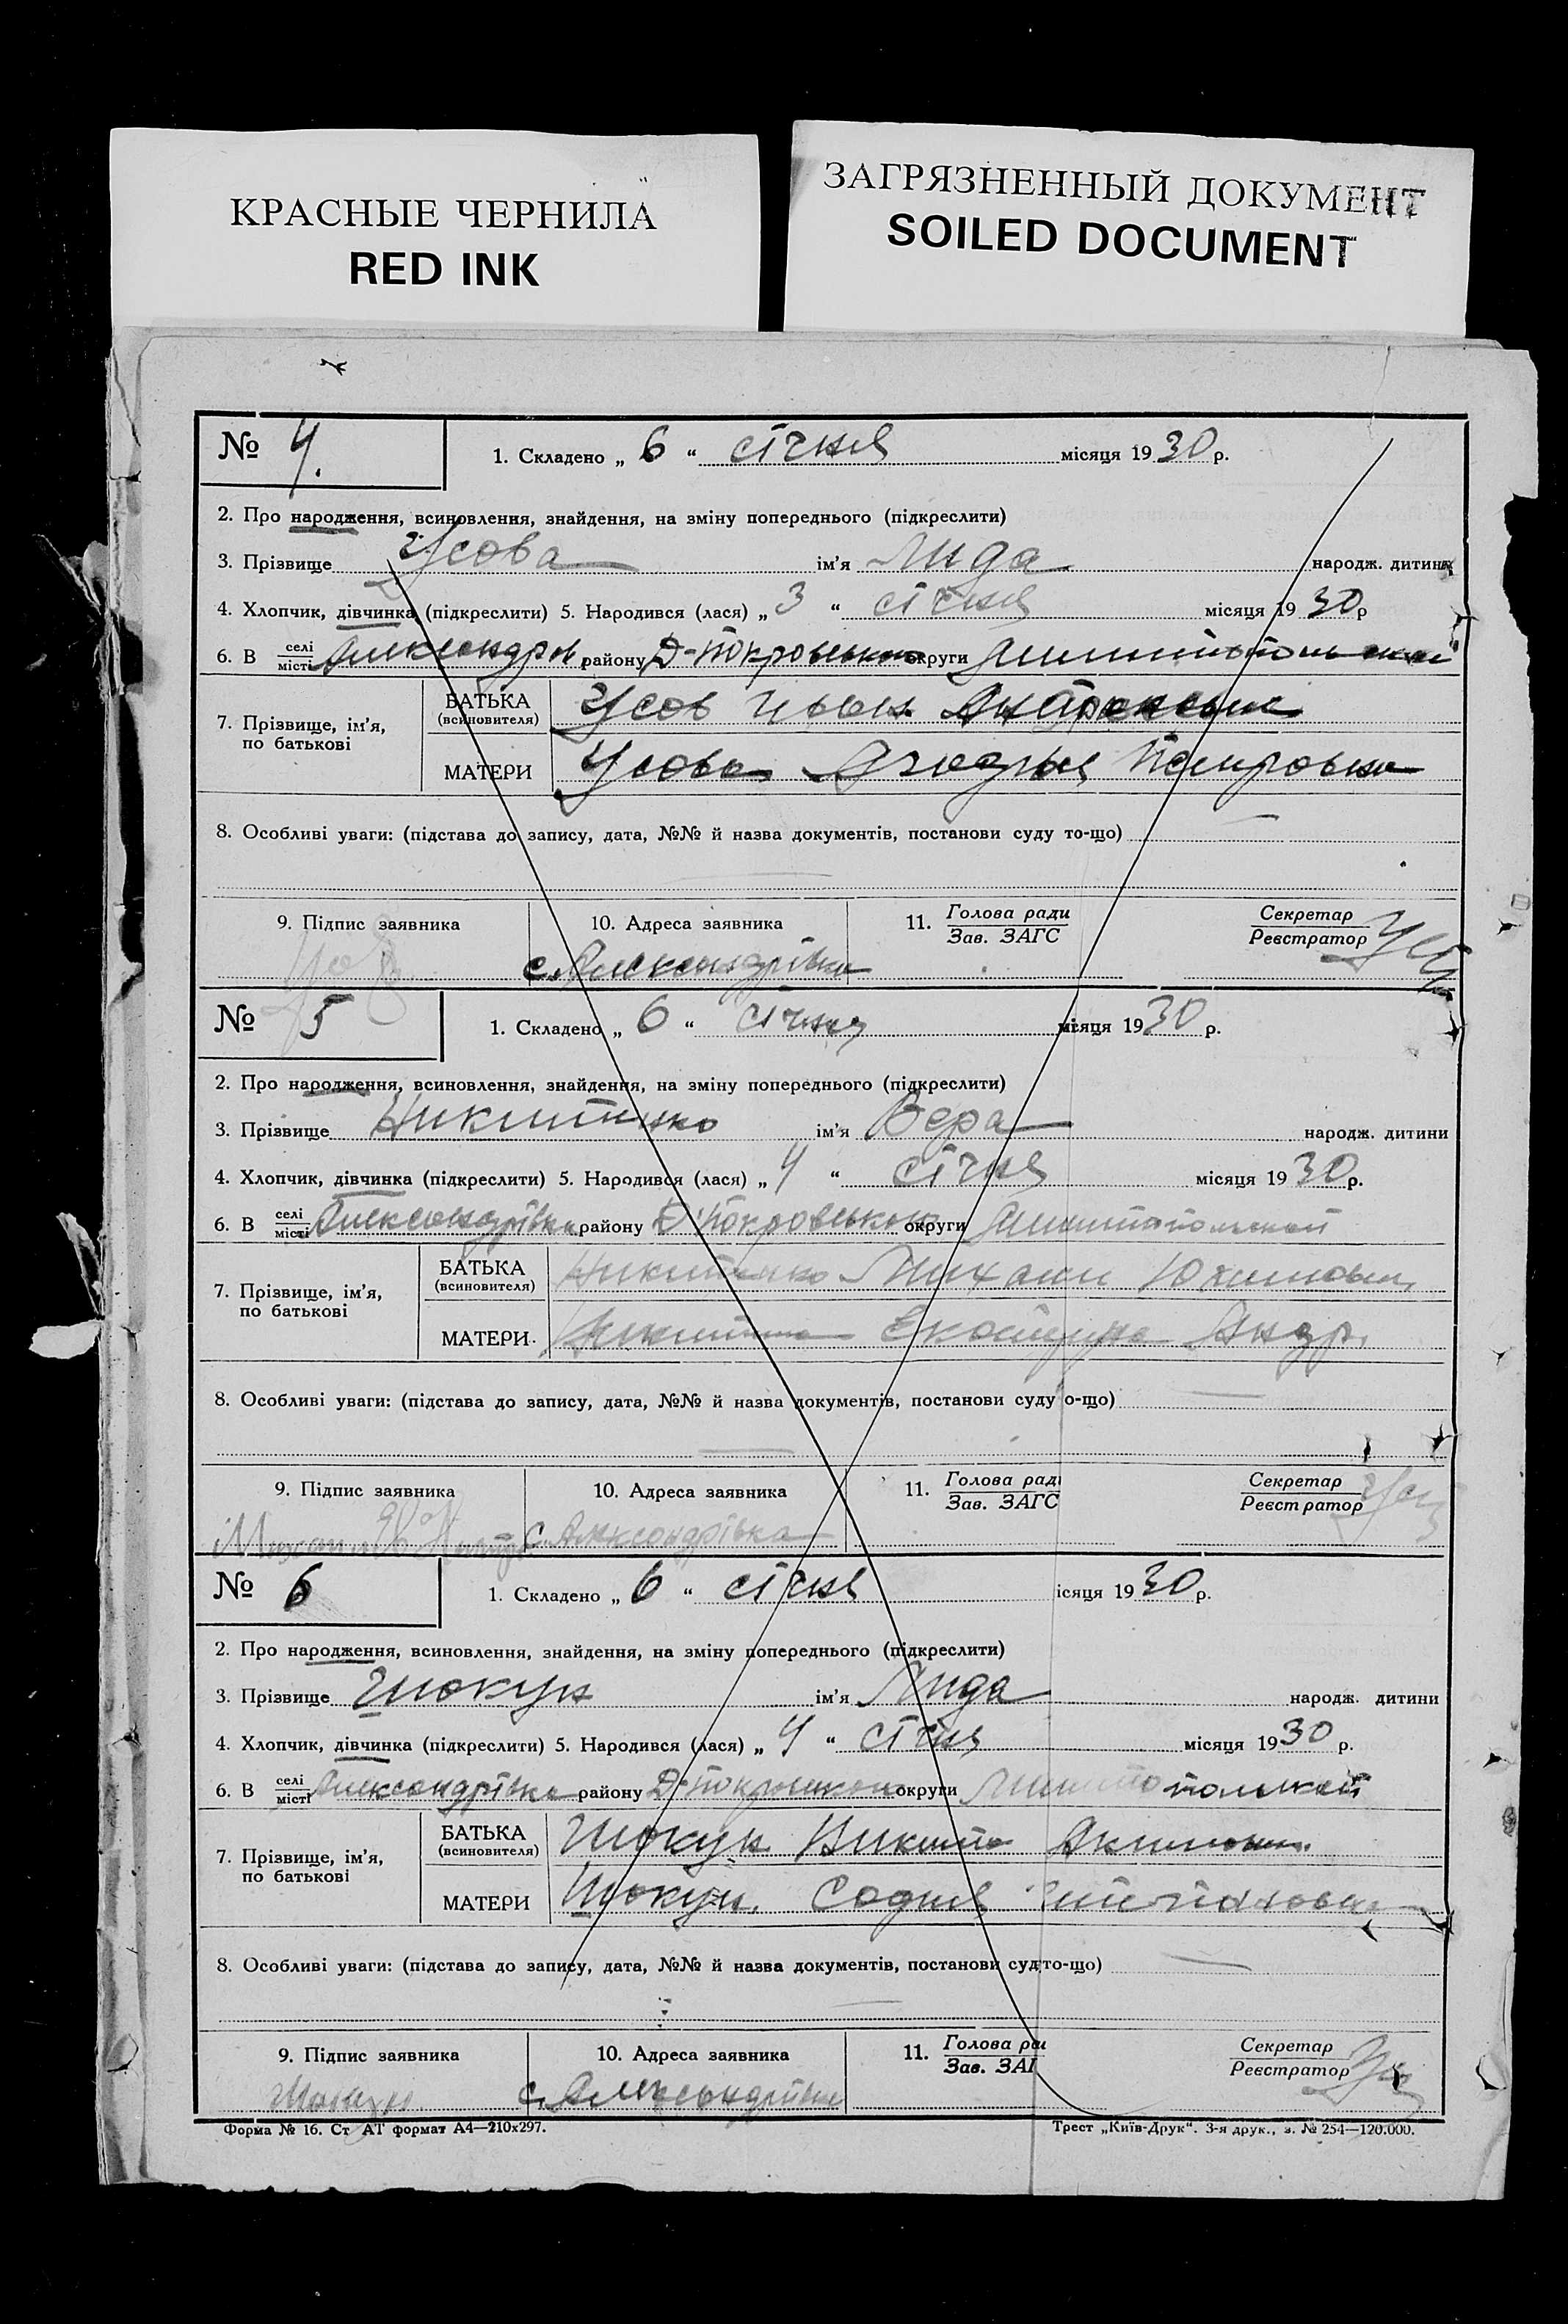 КРАСНЫЕ ЧЕРНИЛА
RED INK
ЗАГРЯЗНЕННЫЙ ДОКУМЕНТ
SOILED DOCUMENT
№ 4. 1. Складено „ 6 “ січня місяця 1930 р.
2. Про народження, всиновлення, знайдення, на зміну попереднього (підкреслити)
3. Прізвище Усова ім'я Лида народж. дитини
4. Хлопчик, дівчинка (підкреслити) 5. Народився (лася) „ 3 “ січня місяця 1930 р
6. В селі місті Александров. району Д-Покровського округи
7. Прізвище, ім'я, по батькові
БАТЬКА (всиновителя) Усов Иван
МАТЕРИ Усова Петровна
8. Особливі уваги: (підстава до запису, дата, №№ й назва документів, постанови суду то-що)
9. Підпис заявника 10. Адреса заявника 11. Голова ради Зав. ЗАГС Секретар Реєстратор
с. Александрівка
№ 5 1. Складено „ 6 “ січня місяця 1930 р.
2. Про народження, всиновлення, знайдення, на зміну попереднього (підкреслити)
3. Прізвище Никитенко ім'я Вера народж. дитини
4. Хлопчик, дівчинка (підкреслити) 5. Народився (лася) „ 4 “ січня місяця 1930 р.
6. В селі місті Александрівка району Д-Покровського округи
7. Прізвище, ім'я, по батькові
БАТЬКА (всиновителя) Никитенко Михаил Юхимович
МАТЕРИ. Андр.
8. Особливі уваги: (підстава до запису, дата, №№ й назва документів, постанови суду о-що)
9. Підпис заявника 10. Адреса заявника 11. Голова раді Зав. ЗАГС Секретар Реєстратор
с. Александрівка
№ 6 1. Складено „ 6 “ січня ісяця 1930 р.
2. Про народження, всиновлення, знайдення, на зміну попереднього (підкреслити)
3. Прізвище Шокун ім'я Лида народж. дитини
4. Хлопчик, дівчинка (підкреслити) 5. Народився (лася) „ 4 “ січня місяця 1930 р.
6. В селі місті Александрівка району Д-Покровського округи
7. Прізвище, ім'я, по батькові
БАТЬКА (всиновителя) Шокун Никита Акимович
МАТЕРИ Шокун
8. Особливі уваги: (підстава до запису, дата, №№ й назва документів, постанови суд то-що)
9. Підпис заявника 10. Адреса заявника 11. Голова ра Зав. ЗАГ Секретар Реєстратор
с. Александрівка
Форма № 16. Ст АТ формат А4—210х297. Трест „Київ-Друк“. 3-я друк., з. № 254—120.000.